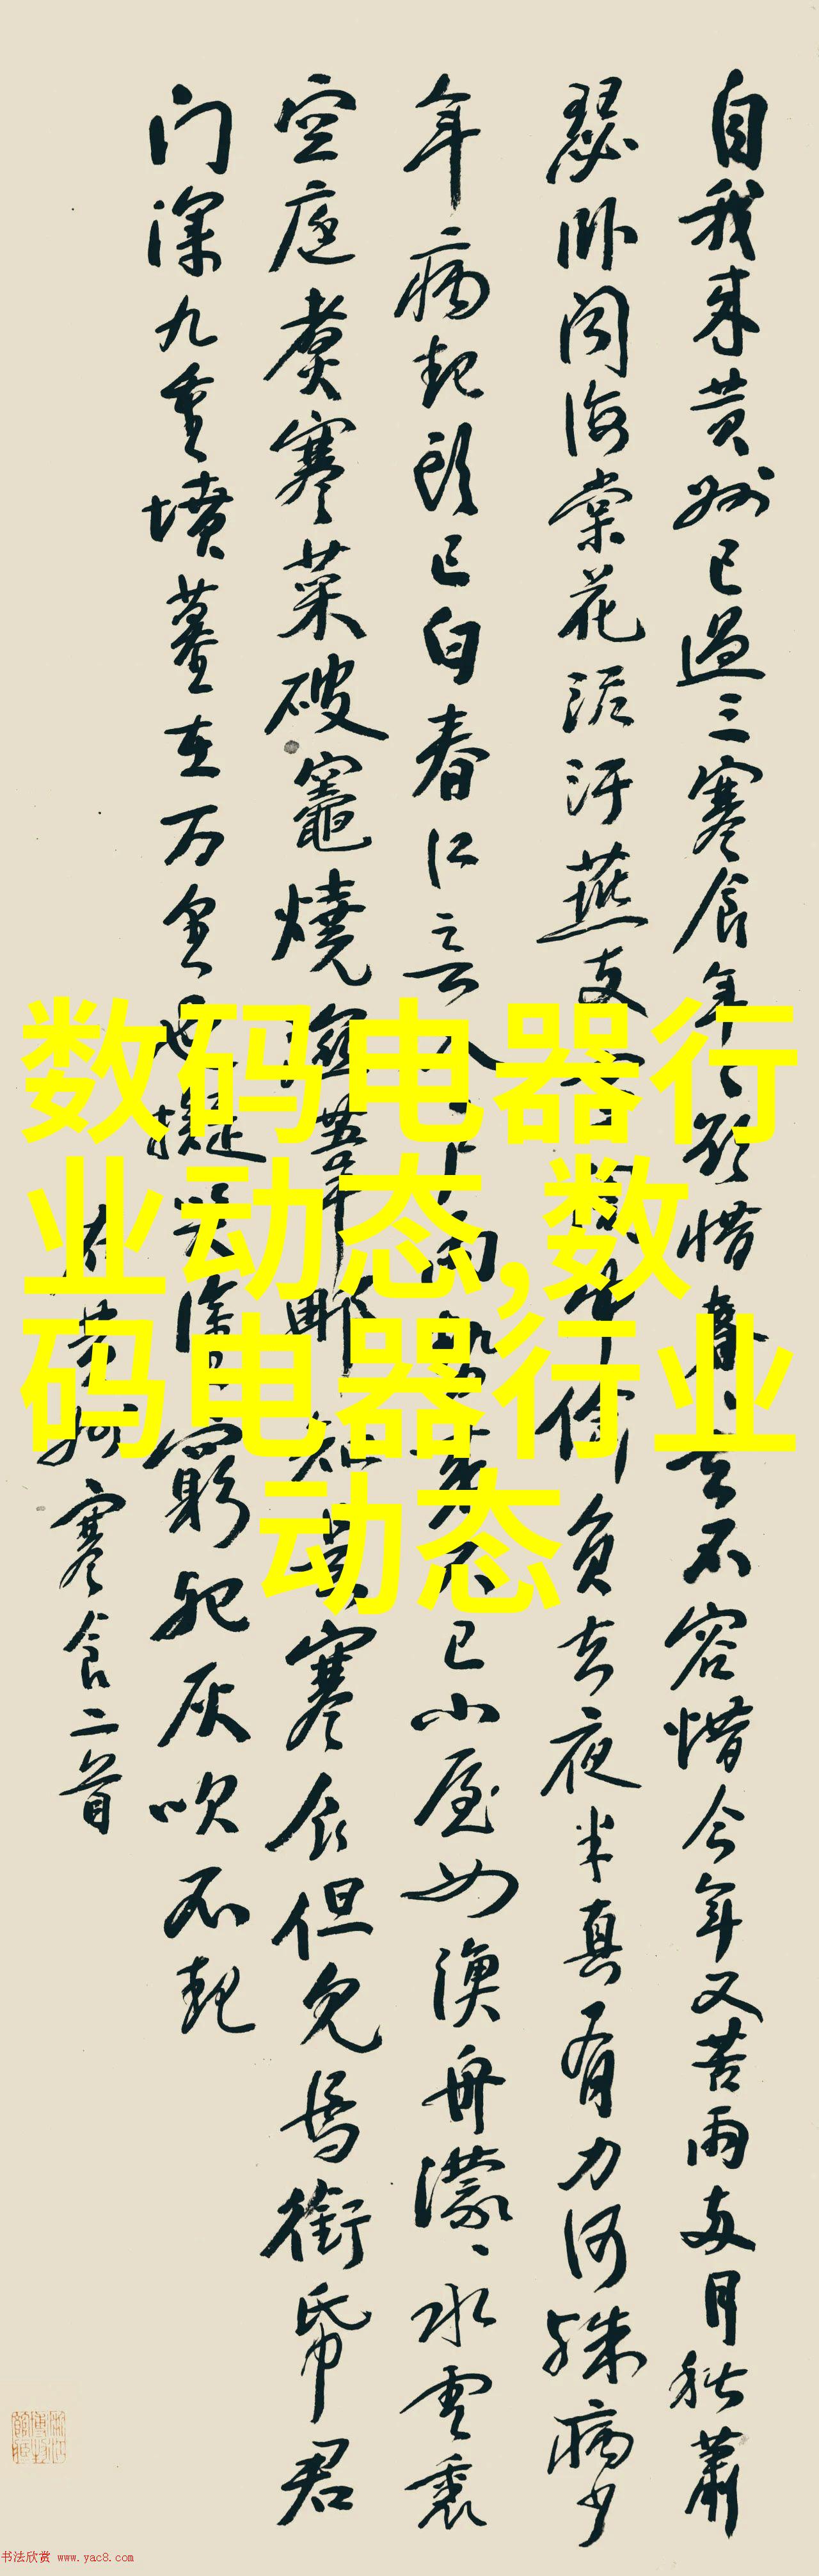 自我来黄州已過三寒食年々欲惜春去不容惜今年又苦雨两月秋蕭
瑟卧闻海棠花泥汙燕支中偷負去夜半真有力何殊病少
年病起頭已白春江入户雨势来不已小屋如漁舟濛々水雲裏
空庖煮寒菜破竈燒濕葦那知是寒食但見烏銜帋君
门深九重墳墓在万里也擬哭塗窮死灰吹不起
右黄州寒食二首
数码电器行
业动态,数
码电器行业
动态
书法欣赏 www.yac8.com